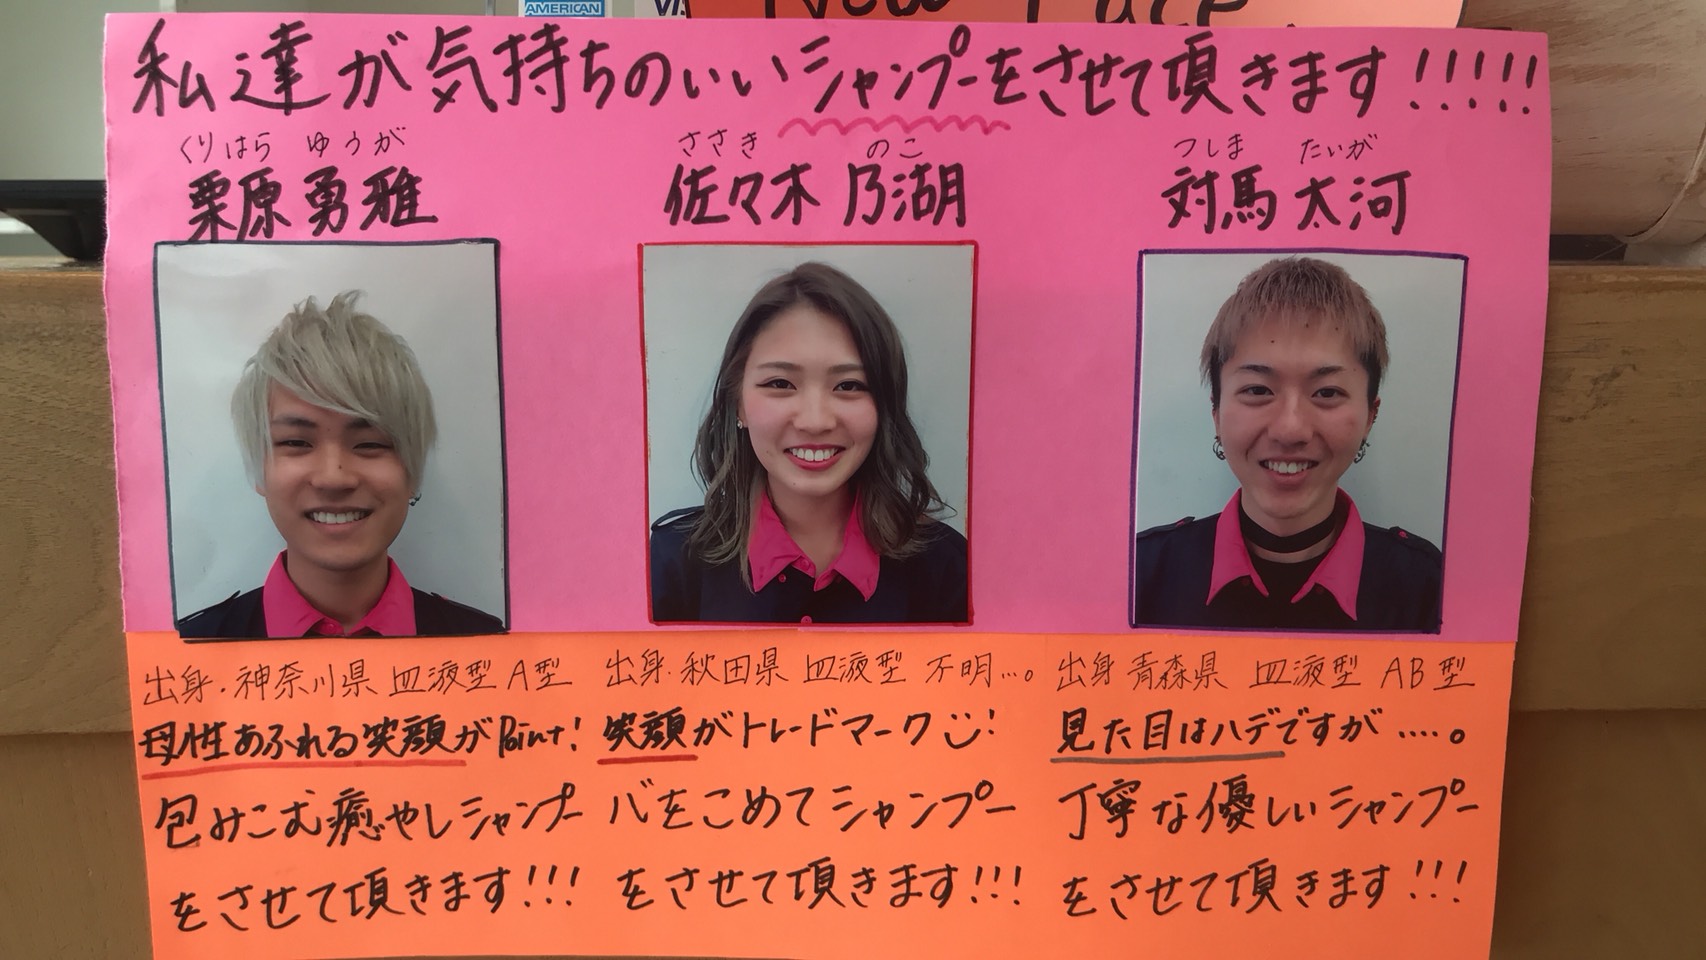 AMERICAN
VIS
New Face.
私達が気持ちのいいシャンプーをさせて頂きます!!!!!
くりはら ゆうが
栗原 勇雅
出身.神奈川県 血液型 A型
母性あふれる笑顔がPoint!
包みこむ癒やしシャンプー
をさせて頂きます!!!
ささき のこ
佐々木 乃湖
出身.秋田県 血液型 不明...。
笑顔がトレードマーク!
心をこめてシャンプー
をさせて頂きます!!!
つしま たいが
対馬 太河
出身 青森県 血液型 AB型
見た目はハデですが....。
丁寧な優しいシャンプー
をさせて頂きます!!!